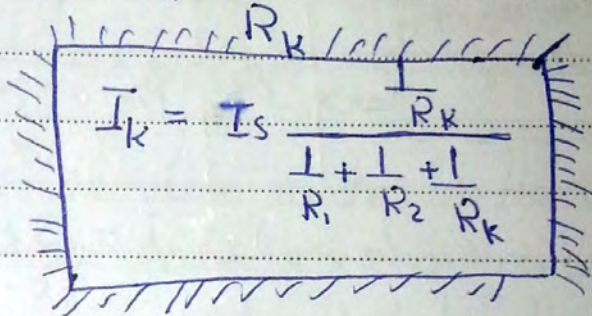 R_K
I_K = I_S (1/R_K) / (1/R_1 + 1/R_2 + 1/R_K)